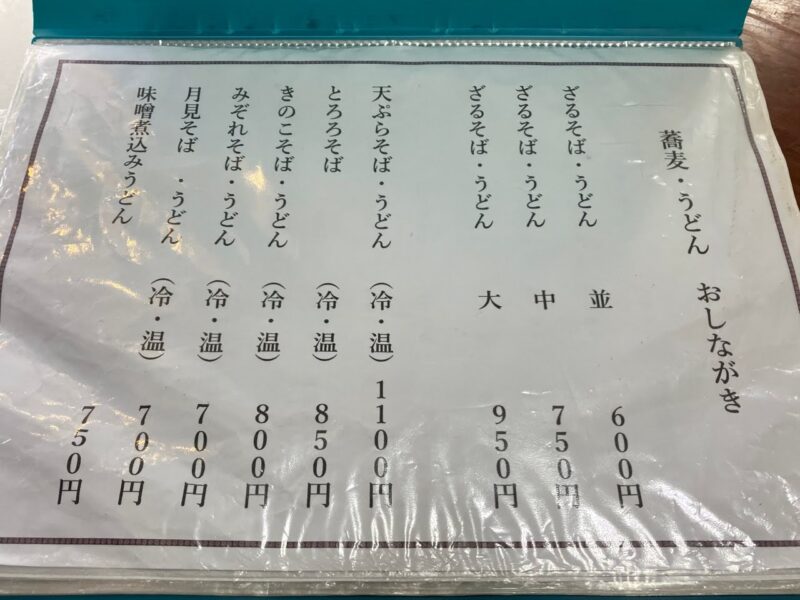 おしながき
蕎麦・うどん
ざるそば・うどん 並 600円
ざるそば・うどん 中 750円
ざるそば・うどん 大 950円
天ぷらそば・うどん (冷・温) 1100円
とろろそば (冷・温) 850円
きのこそば・うどん (冷・温) 800円
みぞれそば・うどん (冷・温) 700円
月見そば ・うどん (冷・温) 700円
味噌煮込みうどん 750円